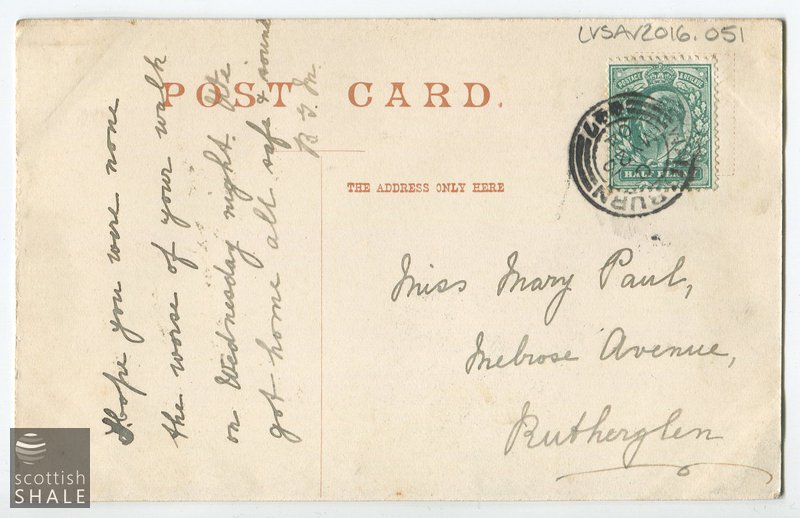 LVSAV2016.051
POST CARD.
THE ADDRESS ONLY HERE
POSTAGE & REVENUE
HALF PENNY
BURN
I hope you were none
the worse of your walk
on Wednesday night. We
got home all safe & sound
B.J.M.
Miss Mary Paul,
Melrose Avenue,
Rutherglen
scottish
SHALE